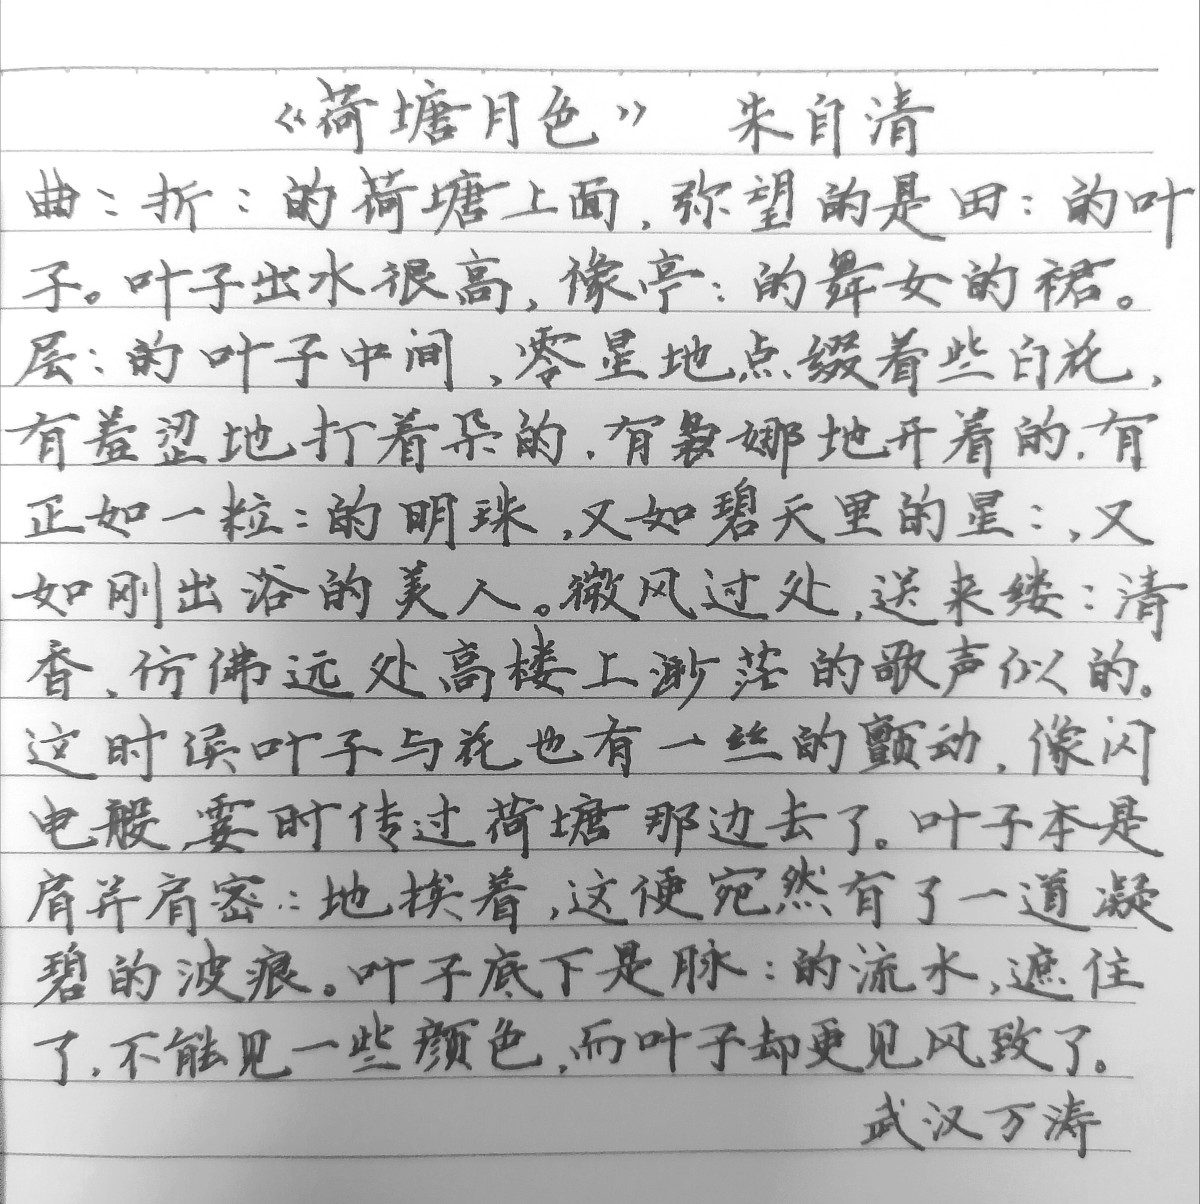 《荷塘月色》 朱自清
曲:折:的荷塘上面,弥望的是田:的叶
子。叶子出水很高,像亭:的舞女的裙。
层:的叶子中间,零星地点缀着些白花,
有羞涩地打着朵的.有袅娜地开着的.有
正如一粒:的明珠,又如碧天里的星:,又
如刚出浴的美人。微风过处,送来缕:清
香,仿佛远处高楼上渺茫的歌声似的。
这时候叶子与花也有一丝的颤动,像闪
电般,霎时传过荷塘那边去了。叶子本是
肩并肩密:地挨着,这便宛然有了一道凝
碧的波痕。叶子底下是脉:的流水,遮住
了.不能见一些颜色,而叶子却更见风致了。
武汉万涛